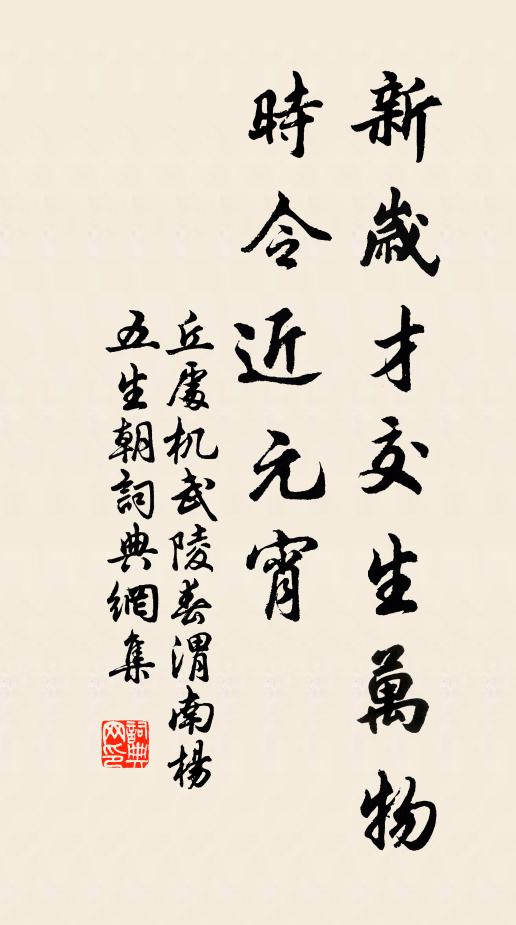 新歲才交生萬物
時令近元宵
丘處机武陵春渭南楊
五生朝詞典網集
詞典網印